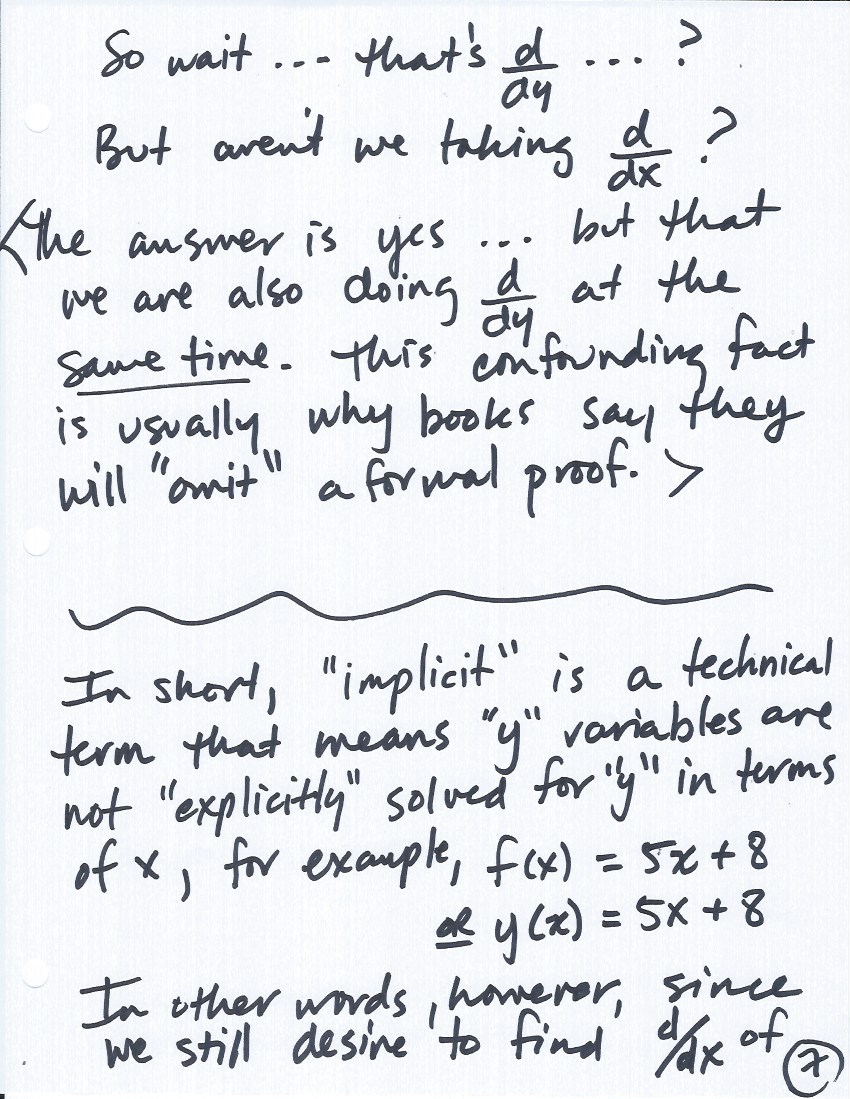 So wait ... that's d/dy ... ?
But aren't we taking d/dx ?
<The answer is yes ... but that
we are also doing d/dy at the
same time. This confounding fact
is usually why books say they
will "omit" a formal proof. >
In short, "implicit" is a technical
term that means "y" variables are
not "explicitly" solved for "y" in terms
of x, for example, f(x) = 5x + 8
OR y(x) = 5x + 8
In other words, however, since
we still desire to find d/dx of
7